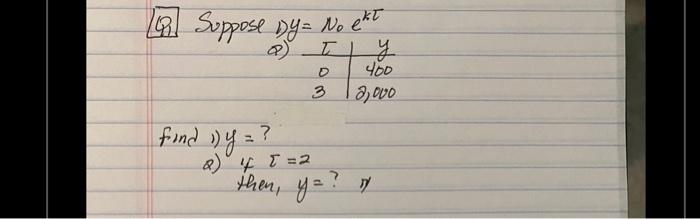 Q1 Suppose 1) y = N₀ e^kt
2) t | y
0 | 400
3 | 2,000
find 1) y = ?
2) if t = 2
then, y = ?